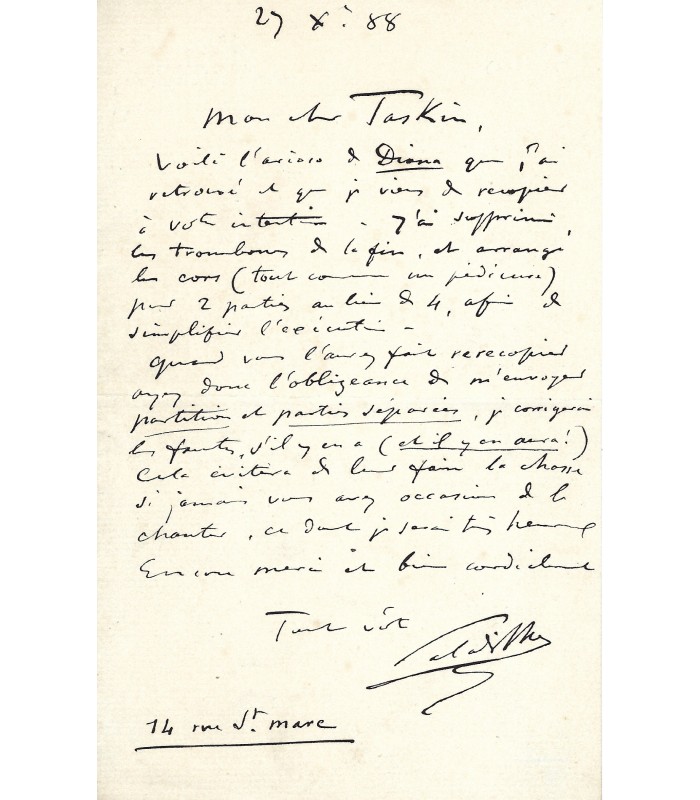 27 Xe 88
Mon cher Taskin,
Voilà l'arioso de Diana que j'ai
retrouvé et que je viens de recopier
à votre intention - J'ai supprimé
les trombones de la fin, et arrangé
les cors (tout comme un pédicure)
pour 2 parties au lieu de 4, afin de
simplifier l'exécution -
Quand vous l'aurez fait rerecopier
ayez donc l'obligeance de m'envoyer
partition et parties séparées, je corrigerai
les fautes, s'il y en a (et il y en aura!)
Cela évitera de leur faire la chasse
si jamais vous avez occasion de le
chanter, ce dont je serai très heureux
Encore merci et bien cordialement
Tout vôtre
Paladilhe
14 rue St. marc